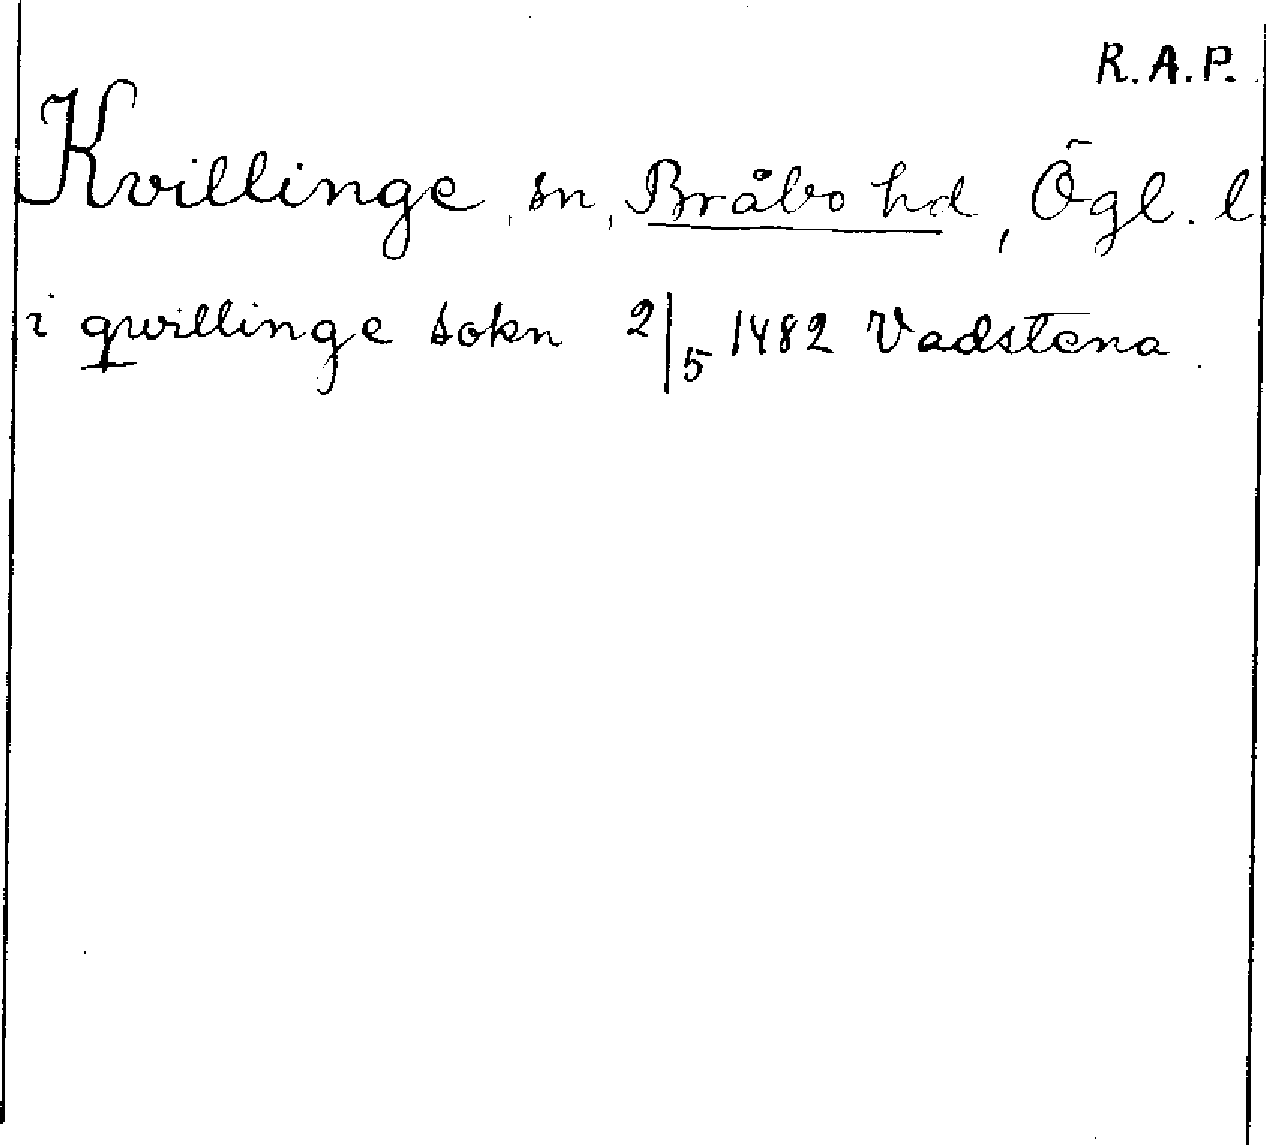 R.A.P.
Kvillinge, sn, Bråbo hd, Ögl. l
i qwillinge sokn 2/5 1482 Vadstena